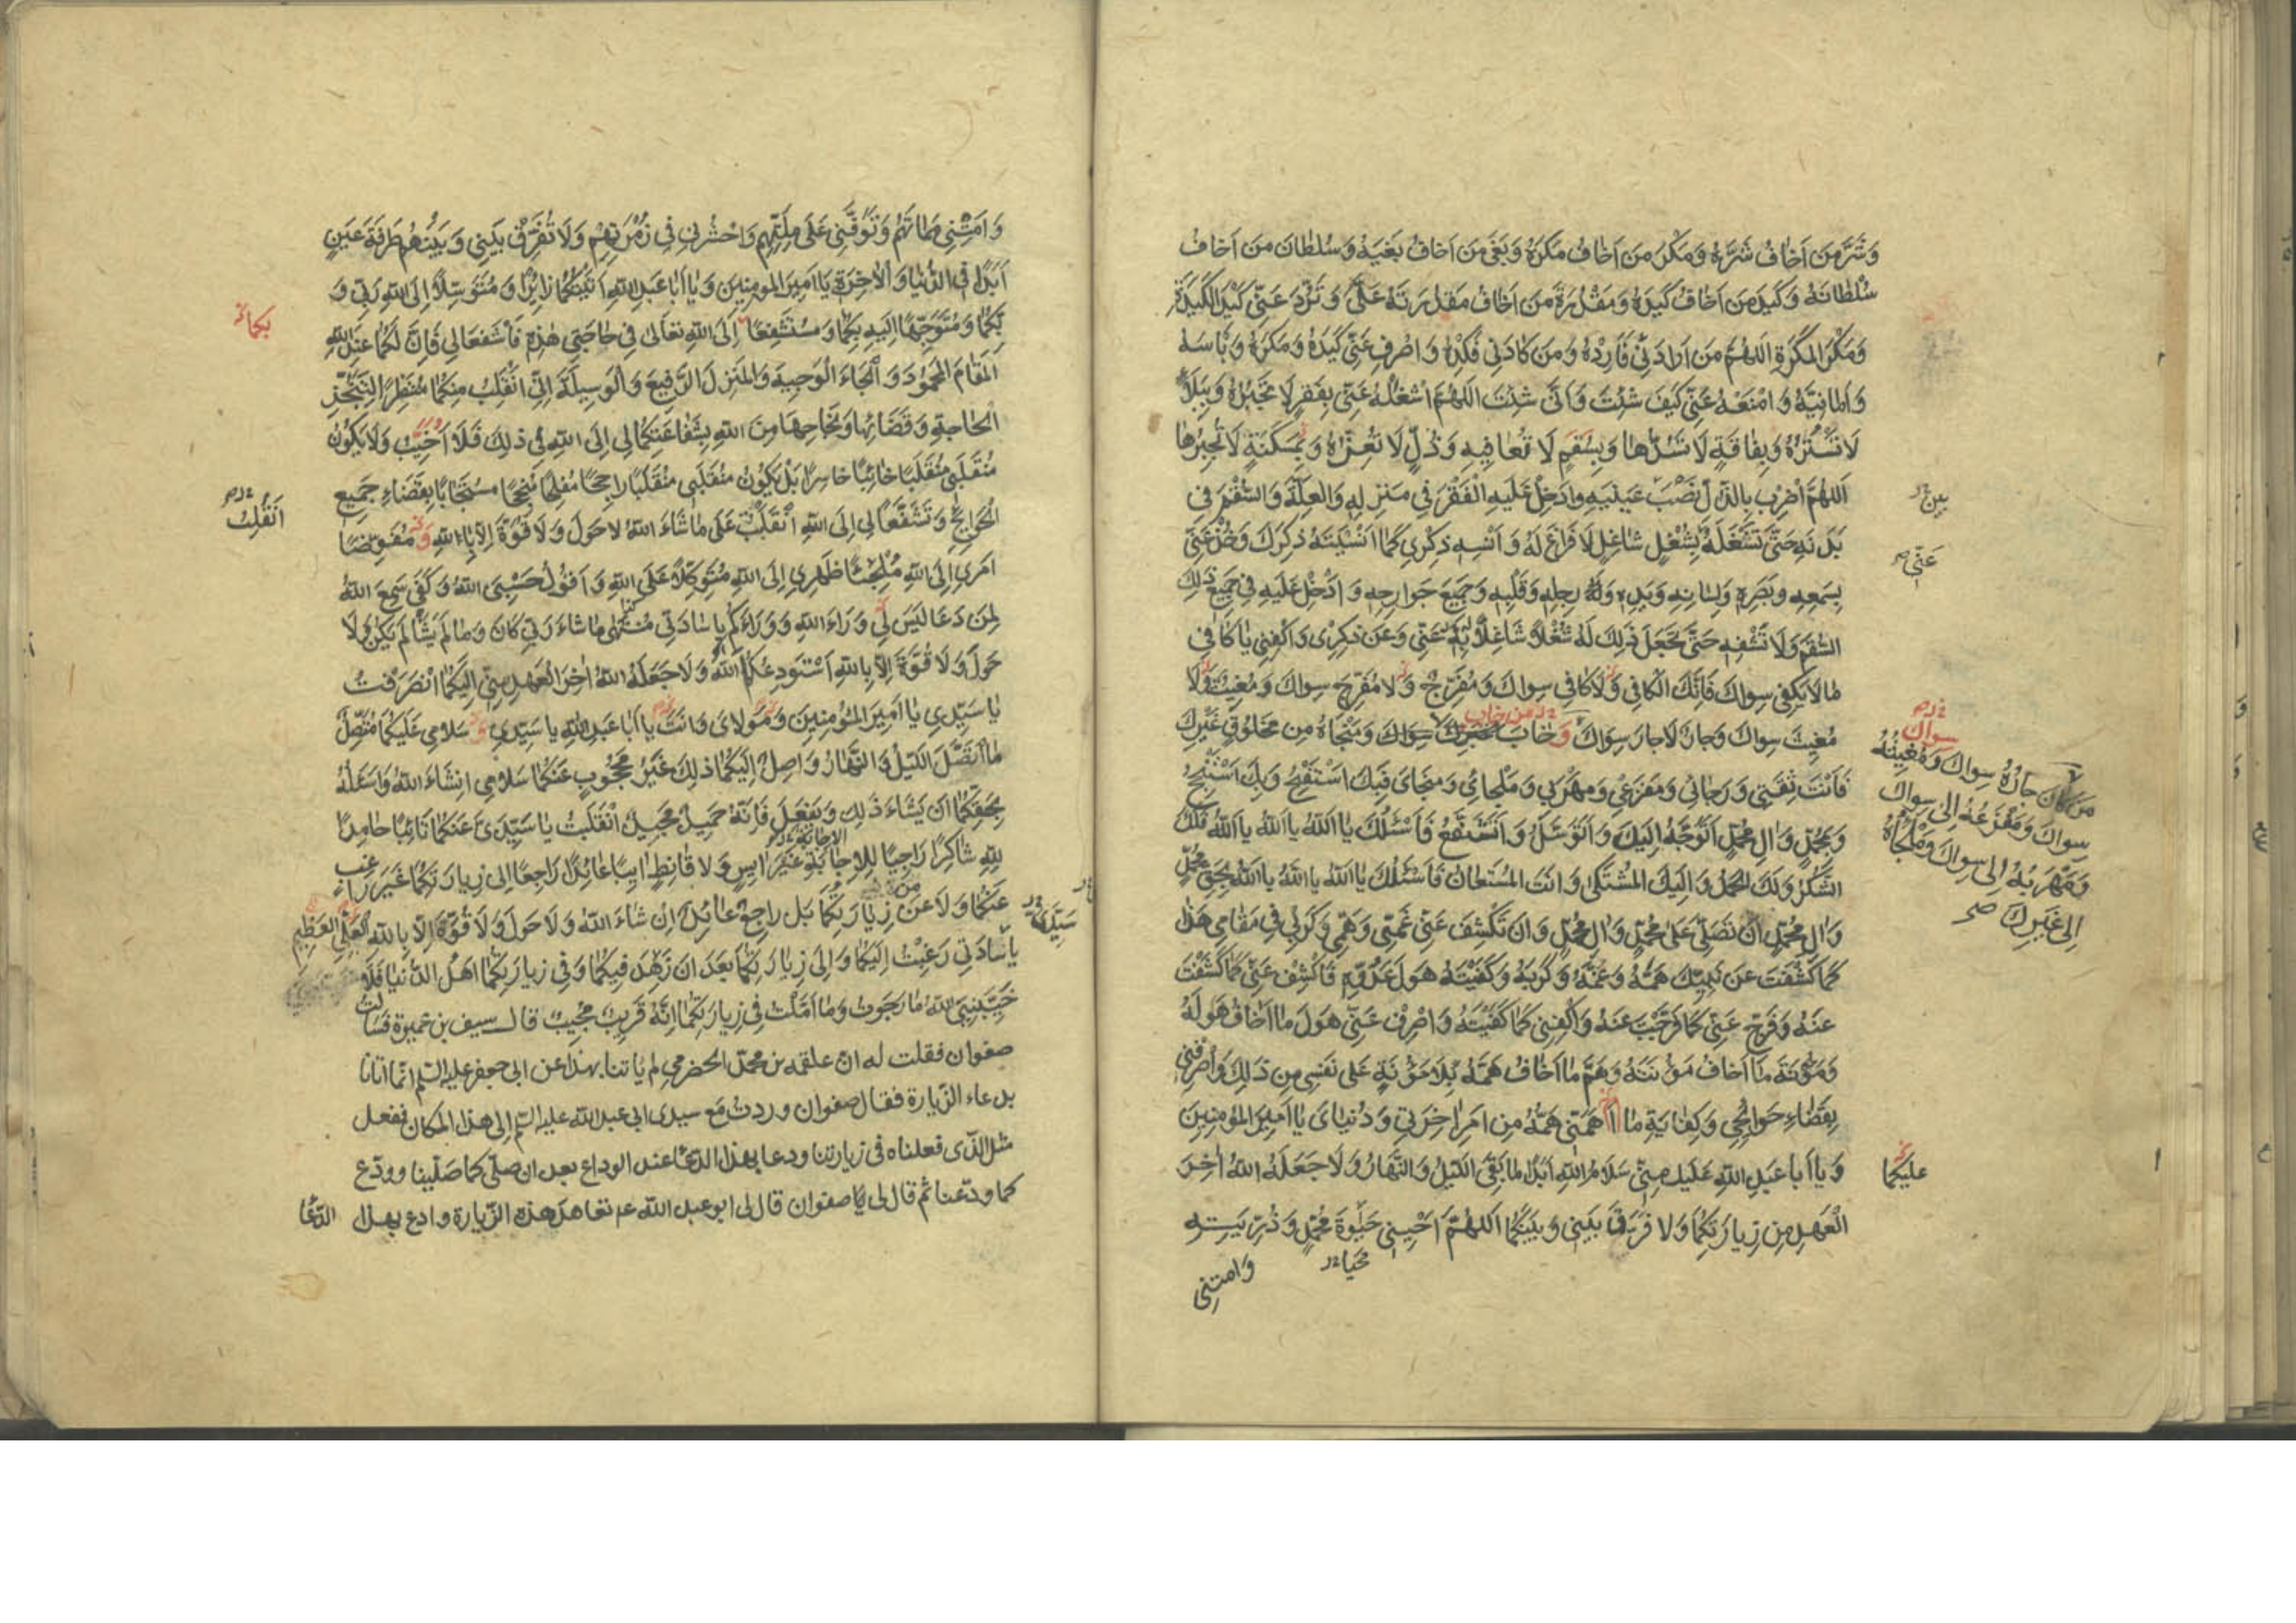 وَشَرَّ مَن اَخافُ شَرَّهُ وَمَكرَ مَن اَخافُ مَكرَهُ وَبَغیَ مَن اَخافُ بَغیَهُ وَسُلطانَ مَن اَخافُ
سُلطانَهُ وَكَیدَ مَن اَخافُ كَیدَهُ وَمَقدُرَةَ مَن اَخافُ مَقدُرَتَهُ عَلَیَّ وَتَرُدَّ عَنّی كَیدَ الكَیَدَةِ
وَمَكرَ المَكَرَةِ اَللهُمَّ مَن اَرادَنی فَاَرِدهُ وَمَن كادَنی فَكِدهُ وَاصرِف عَنّی كَیدَهُ وَمَكرَهُ وَبَأسَهُ
وَاَمانِیَّهُ وَامنَعهُ عَنّی كَیفَ شِئتَ وَاَنّی شِئتَ اَللهُمَّ اشغَلهُ عَنّی بِفَقرٍ لا تَجبُرُهُ وَبِبَلاءٍ
لا تَستُرُهُ وَبِفاقَةٍ لا تَسُدُّها وَبِسُقمٍ لا تُعافیهِ وَذُلٍّ لا تُعِزُّهُ وَبِمَسكَنَةٍ لا تَجبُرُها
اَللهُمَّ اضرِب بِالذُّلِّ نَصبَ عَینَیهِ وَادخِل عَلَیهِ الفَقرَ فی مَنزِلِهِ وَالعِلَّةَ وَالسُّقمَ فی
بَدَنِهِ حَتّی تَشغَلَهُ بِشُغلٍ شاغِلٍ لا فَراغَ لَهُ وَاَنسِهِ ذِكری كَما اَنسَیتَهُ ذِكرَكَ وَخُذ عَنّی
بِسَمعِهِ وَبَصَرِهِ وَلِسانِهِ وَیَدِهِ وَرِجلِهِ وَقَلبِهِ وَجَمیعِ جَوارِحِهِ وَادخِل عَلَیهِ فی جَمیعِ ذلِكَ
السُّقمَ وَلا تَشفِهِ حَتّی تَجعَلَ ذلِكَ لَهُ شُغلًا شاغِلًا بِهِ عَنّی وَعَن ذِكری وَاكفِنی یا كافی
ما لا یَكفی سِواكَ فَاِنَّكَ الكافی وَلا كافی سِواكَ وَمُفَرِّجٌ وَلا مُفَرِّجَ سِواكَ وَمُغیثٌ وَلا
مُغیثَ سِواكَ وَجارٌ لا جارَ سِواكَ وَخابَ سِواكَ وَمَنجاهُ مِن مَخلُوقٍ غَیرِكَ
فَاَنتَ ثِقَتی وَرَجائی وَمَفزَعی وَمَهرَبی وَمَلجائی وَمَنجایَ فَبِكَ اَستَفتِحُ وَبِكَ اَستَنجِحُ
وَبِمُحَمَّدٍ وَالِ مُحَمَّدٍ اَتَوَجَّهُ اِلَیكَ وَاَتَوَسَّلُ وَاَتَشَفَّعُ فَاَسئَلُكَ یا اَللهُ یا اَللهُ یا اَللهُ فَلَكَ
الشُّكرُ وَلَكَ الحَمدُ وَاِلَیكَ المُشتَكی وَاَنتَ المُستَعانُ فَاَسئَلُكَ یا اَللهُ یا اَللهُ یا اَللهُ بِحَقِّ مُحَمَّدٍ
وَالِ مُحَمَّدٍ اَن تُصَلِّیَ عَلی مُحَمَّدٍ وَالِ مُحَمَّدٍ وَاَن تَكشِفَ عَنّی غَمّی وَهَمّی وَكَربی فی مَقامی هَذا
كَما كَشَفتَ عَن نَبِیِّكَ هَمَّهُ وَغَمَّهُ وَكَربَهُ وَكَفَیتَهُ هَولَ عَدُوِّهِ فَاكشِف عَنّی كَما كَشَفتَ
عَنهُ وَفَرِّج عَنّی كَما فَرَّجتَ عَنهُ وَاكفِنی كَما كَفَیتَهُ وَاصرِف عَنّی هَولَ ما اَخافُ هَولَهُ
وَمَؤُنَةَ ما اَخافُ مَؤُنَتَهُ وَهَمَّ ما اَخافُ هَمَّهُ بِلا مَؤُنَةٍ عَلی نَفسی مِن ذلِكَ وَاصرِفنی
بِقَضاءِ حَوائِجی وَكِفایَةِ ما اَهَمَّنی هَمُّهُ مِن اَمرِ اخِرَتی وَدُنیایَ یا اَمیرَ المُؤمِنینَ
وَیا اَبا عَبدِ اللهِ عَلَیكَ مِنّی سَلامُ اللهِ اَبَدًا ما بَقِیَ اللَیلُ وَالنَّهارُ وَلا جَعَلَهُ اللهُ اخِرَ
العَهدِ مِن زِیارَتِكُما وَلا فَرَّقَ بَینی وَبَینَكُما اَللهُمَّ اَحیِنی حَیوةَ مُحَمَّدٍ وَذُرِّیَّتِهِ
محیا
وامتنی
عَنّی
سِواك
مَن كانَ جارُهُ سِواكَ وَمُغیثُهُ
سِواكَ وَمَفزَعُهُ اِلی سِواكَ
وَمَهرَبُهُ اِلی سِواكَ وَمَلجَأُهُ
اِلی غَیرِكَ صح
علیكما
وَاَمِتنی مَماتَهُم وَتَوَفَّنی عَلی مِلَّتِهِم وَاحشُرنی فی زُمرَتِهِم وَلا تُفَرِّق بَینی وَبَینَهُم طَرفَةَ عَینٍ
اَبَدًا فِی الدُّنیا وَالاخِرَةِ یا اَمیرَ المومِنینَ وَیا اَبا عَبدِ اللهِ اَتَیتُكُما زائِرًا وَمُتَوَسِّلًا اِلَی اللهِ رَبّی وَ
بِكُما وَمُتَوَجِّهًا اِلَیهِ بِكُما وَمُستَشفِعًا اِلَی اللهِ تَعالی فی حاجَتی هذِهِ فَاشفَعا لی فَاِنَّ لَكُما عِندَ اللهِ
المَقامَ المَحمُودَ وَالجاهَ الوَجیهَ وَالمَنزِلَ الرَّفیعَ وَالوَسیلَةَ اِنّی اَنقَلِبُ مِنكُما مُنتَظِرًا لِتَنَجُّزِ
الحاجَةِ وَقَضائِها وَنَجاحِها مِنَ اللهِ بِشَفاعَتِكُما لی اِلَی اللهِ فی ذلِكَ فَلا اَخیبُ وَلا یَكُونُ
مُنقَلَبی مُنقَلَبًا خائِبًا خاسِرًا بَل یَكُونُ مُنقَلَبی مُنقَلَبًا راجِحًا مُفلِحًا مُنجِحًا مُستَجابًا بِقَضاءِ جَمیعِ
الحَوائِجِ وَتَشَفَّعا لی اِلَی اللهِ اَنقَلِبُ عَلی ما شاءَ اللهُ لا حَولَ وَلا قُوَّةَ اِلّا بِاللهِ وَمُفَوِّضًا
اَمری اِلَی اللهِ مُلجِئًا ظَهری اِلَی اللهِ مُتَوَكِّلًا عَلَی اللهِ وَاَقُولُ حَسبِیَ اللهُ وَكَفی سَمِعَ اللهُ
لِمَن دَعا لَیسَ لی وَراءَ اللهِ وَوَراءَكُم یا سادَتی مُنتَهی ما شاءَ رَبّی كانَ وَما لَم یَشَأ لَم یَكُن وَلا
حَولَ وَلا قُوَّةَ اِلّا بِاللهِ اَستَودِعُكُمَا اللهَ وَلا جَعَلَهُ اللهُ اخِرَ العَهدِ مِنّی اِلَیكُما انصَرَفتُ
یا سَیِّدی یا اَمیرَ المُؤمِنینَ وَمَولایَ وَاَنتَ یا اَبا عَبدِ اللهِ یا سَیِّدی وَسَلامی عَلَیكُما مُتَّصِلٌ
مَا اتَّصَلَ اللَیلُ وَالنَّهارُ واصِلٌ اِلَیكُما ذلِكَ غَیرُ مَحجُوبٍ عَنكُما سَلامی انشاءَ اللهُ وَاَسئَلُهُ
بِحَقِّكُما اَن یَشاءَ ذلِكَ وَیَفعَلَ فَاِنَّهُ حَمیدٌ مَجیدٌ انقَلَبتُ یا سَیِّدَیَّ عَنكُما تائِبًا حامِدًا
لِلّهِ شاكِرًا راجِیًا لِلاِجابَةِ غَیرَ ایِسٍ وَلا قانِطٍ ایِبًا عائِدًا راجِعًا اِلی زِیارَتِكُما غَیرَ راغِبٍ
عَنكُما وَلا عَن زِیارَتِكُما بَل راجِعٌ عائِدٌ اِن شاءَ اللهُ وَلا حَولَ وَلا قُوَّةَ اِلّا بِاللهِ العَلِیِّ العَظیمِ
یا سادَتی رَغِبتُ اِلَیكُما وَاِلی زِیارَتِكُما بَعدَ اَن زَهِدَ فیكُما وَفی زِیارَتِكُما اَهلُ الدُّنیا فَلا
خَیَّبَنِیَ اللهُ ما رَجَوتُ وَما اَمَّلتُ فی زِیارَتِكُما اِنَّهُ قَریبٌ مُجیبٌ قال سیف بن عمیرة فسألت
صفوان فقلت له ان علقمه بن محمد الحضرمی لم یاتنا بهذا عن ابی جعفر علیه السلم انما اتانا
بدعاء الزیارة فقال صفوان وردت مع سیدی ابی عبد الله علیه السلم الی هذا المكان ففعل
مثل الذی فعلناه فی زیارتنا ودعا بهذا الدعا عند الوداع بعد ان صلی كما صلینا وودع
كما ودعنا ثم قال لی یا صفوان قال لی ابو عبد الله ع تعاهد هذه الزیارة وادع بهذا الدعا
بكما
اَنقَلِبُ
سَیِّدَیَّ